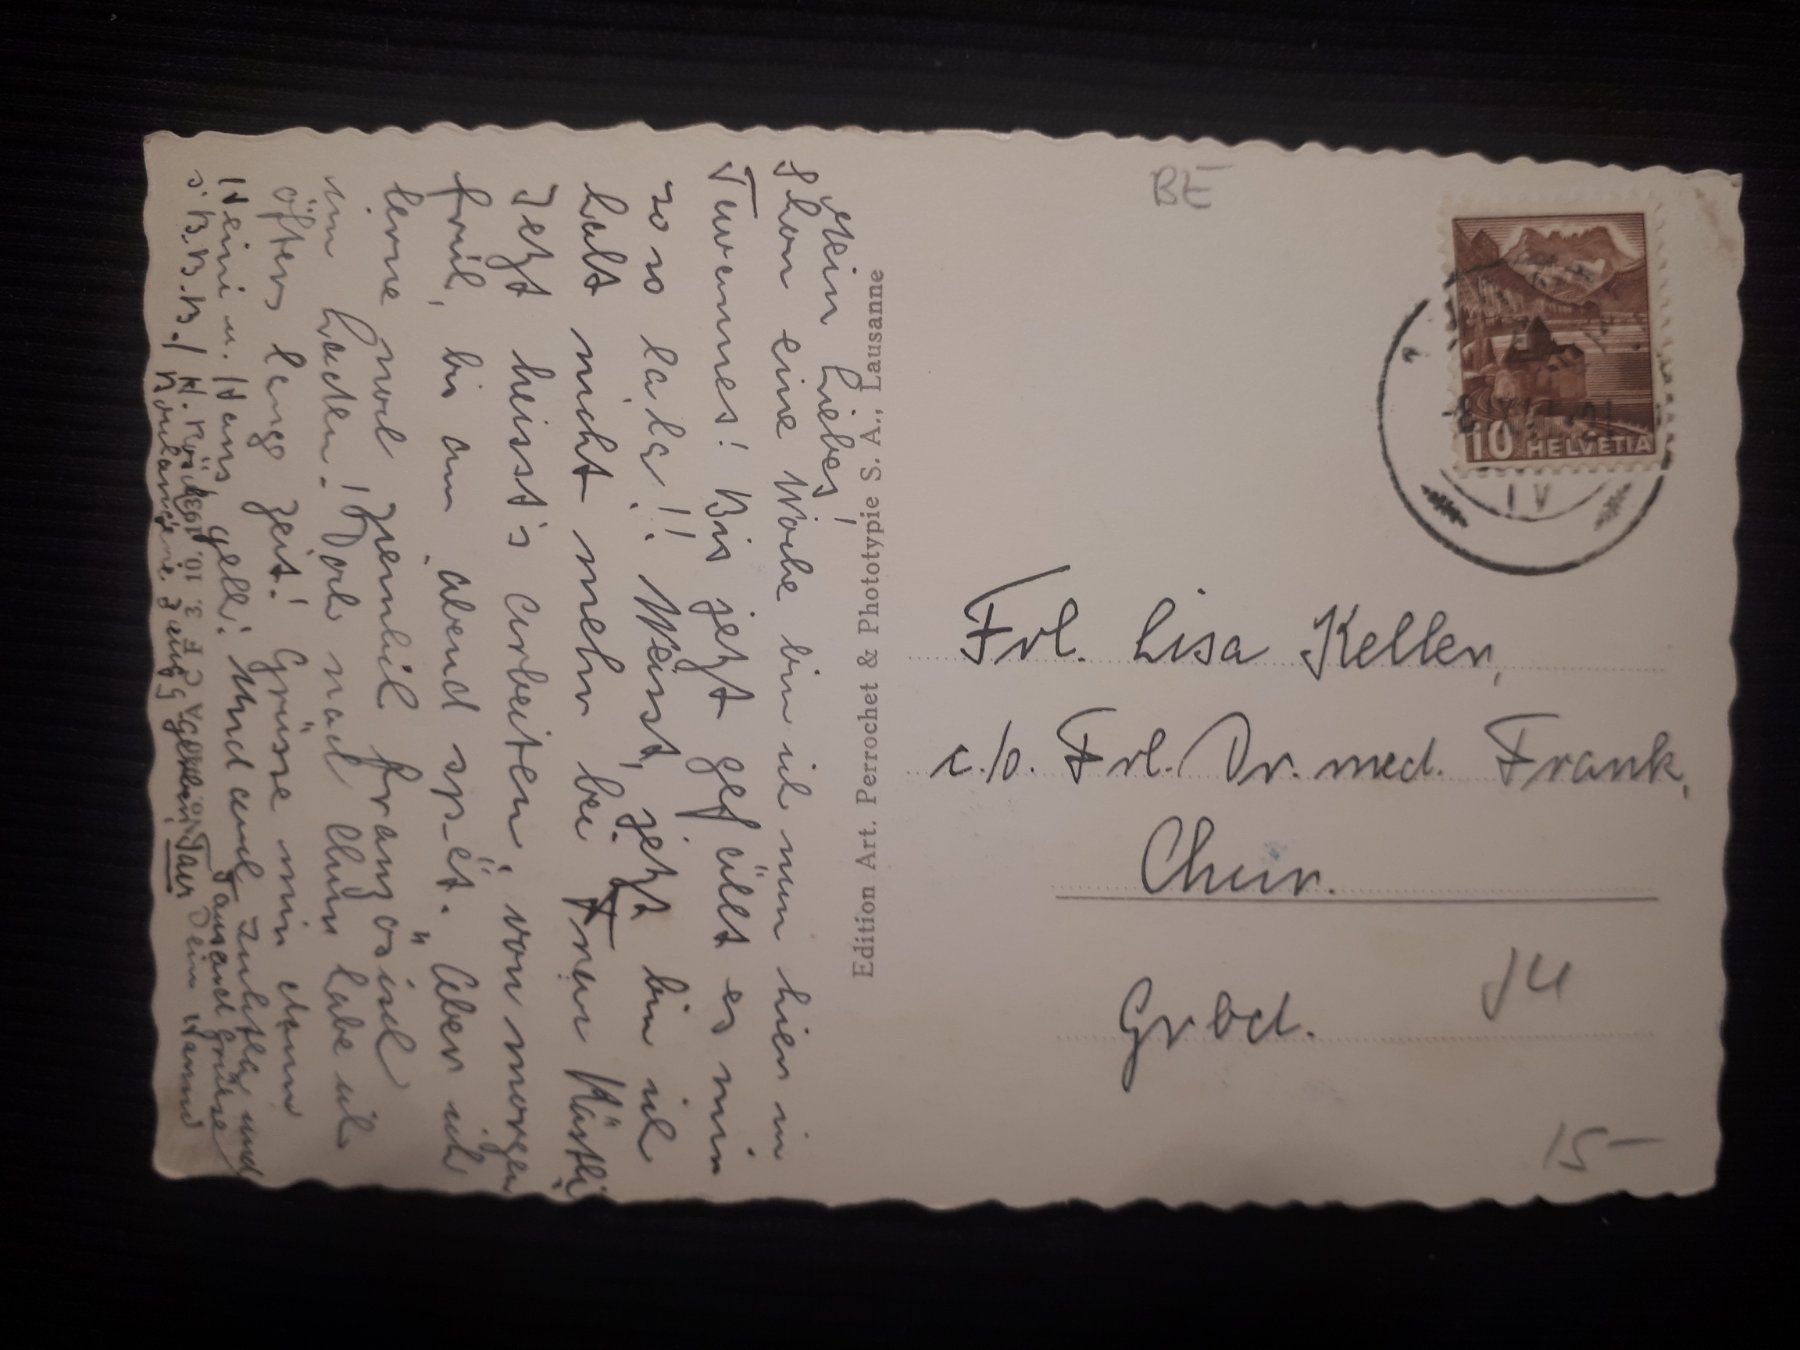 Mein Liebes!
Schon eine Woche bin ich nun hier in
Tavannes! Bis jetzt gefällt es mir
so so lala!! Weisst, jetzt bin ich
halt nicht mehr bei Frau Kästli.
Jetzt heisst's arbeiten, von morgen
früh, bis am abend spät. Aber ich
lerne noch ziemlich französisch
Doch nach Chur habe ich
öfters lange Zeit! Grüsse mir dann
Heini u. Hans gell! Und auch
Tausend Grüsse
Dein Hanni
Edition Art. Perrochet & Phototypie S. A., Lausanne
BE
10 HELVETIA
IV
Frl. Lisa Keller,
c./o. Frl. Dr. med. Frank,
Chur.
Grbd.
JU
15-